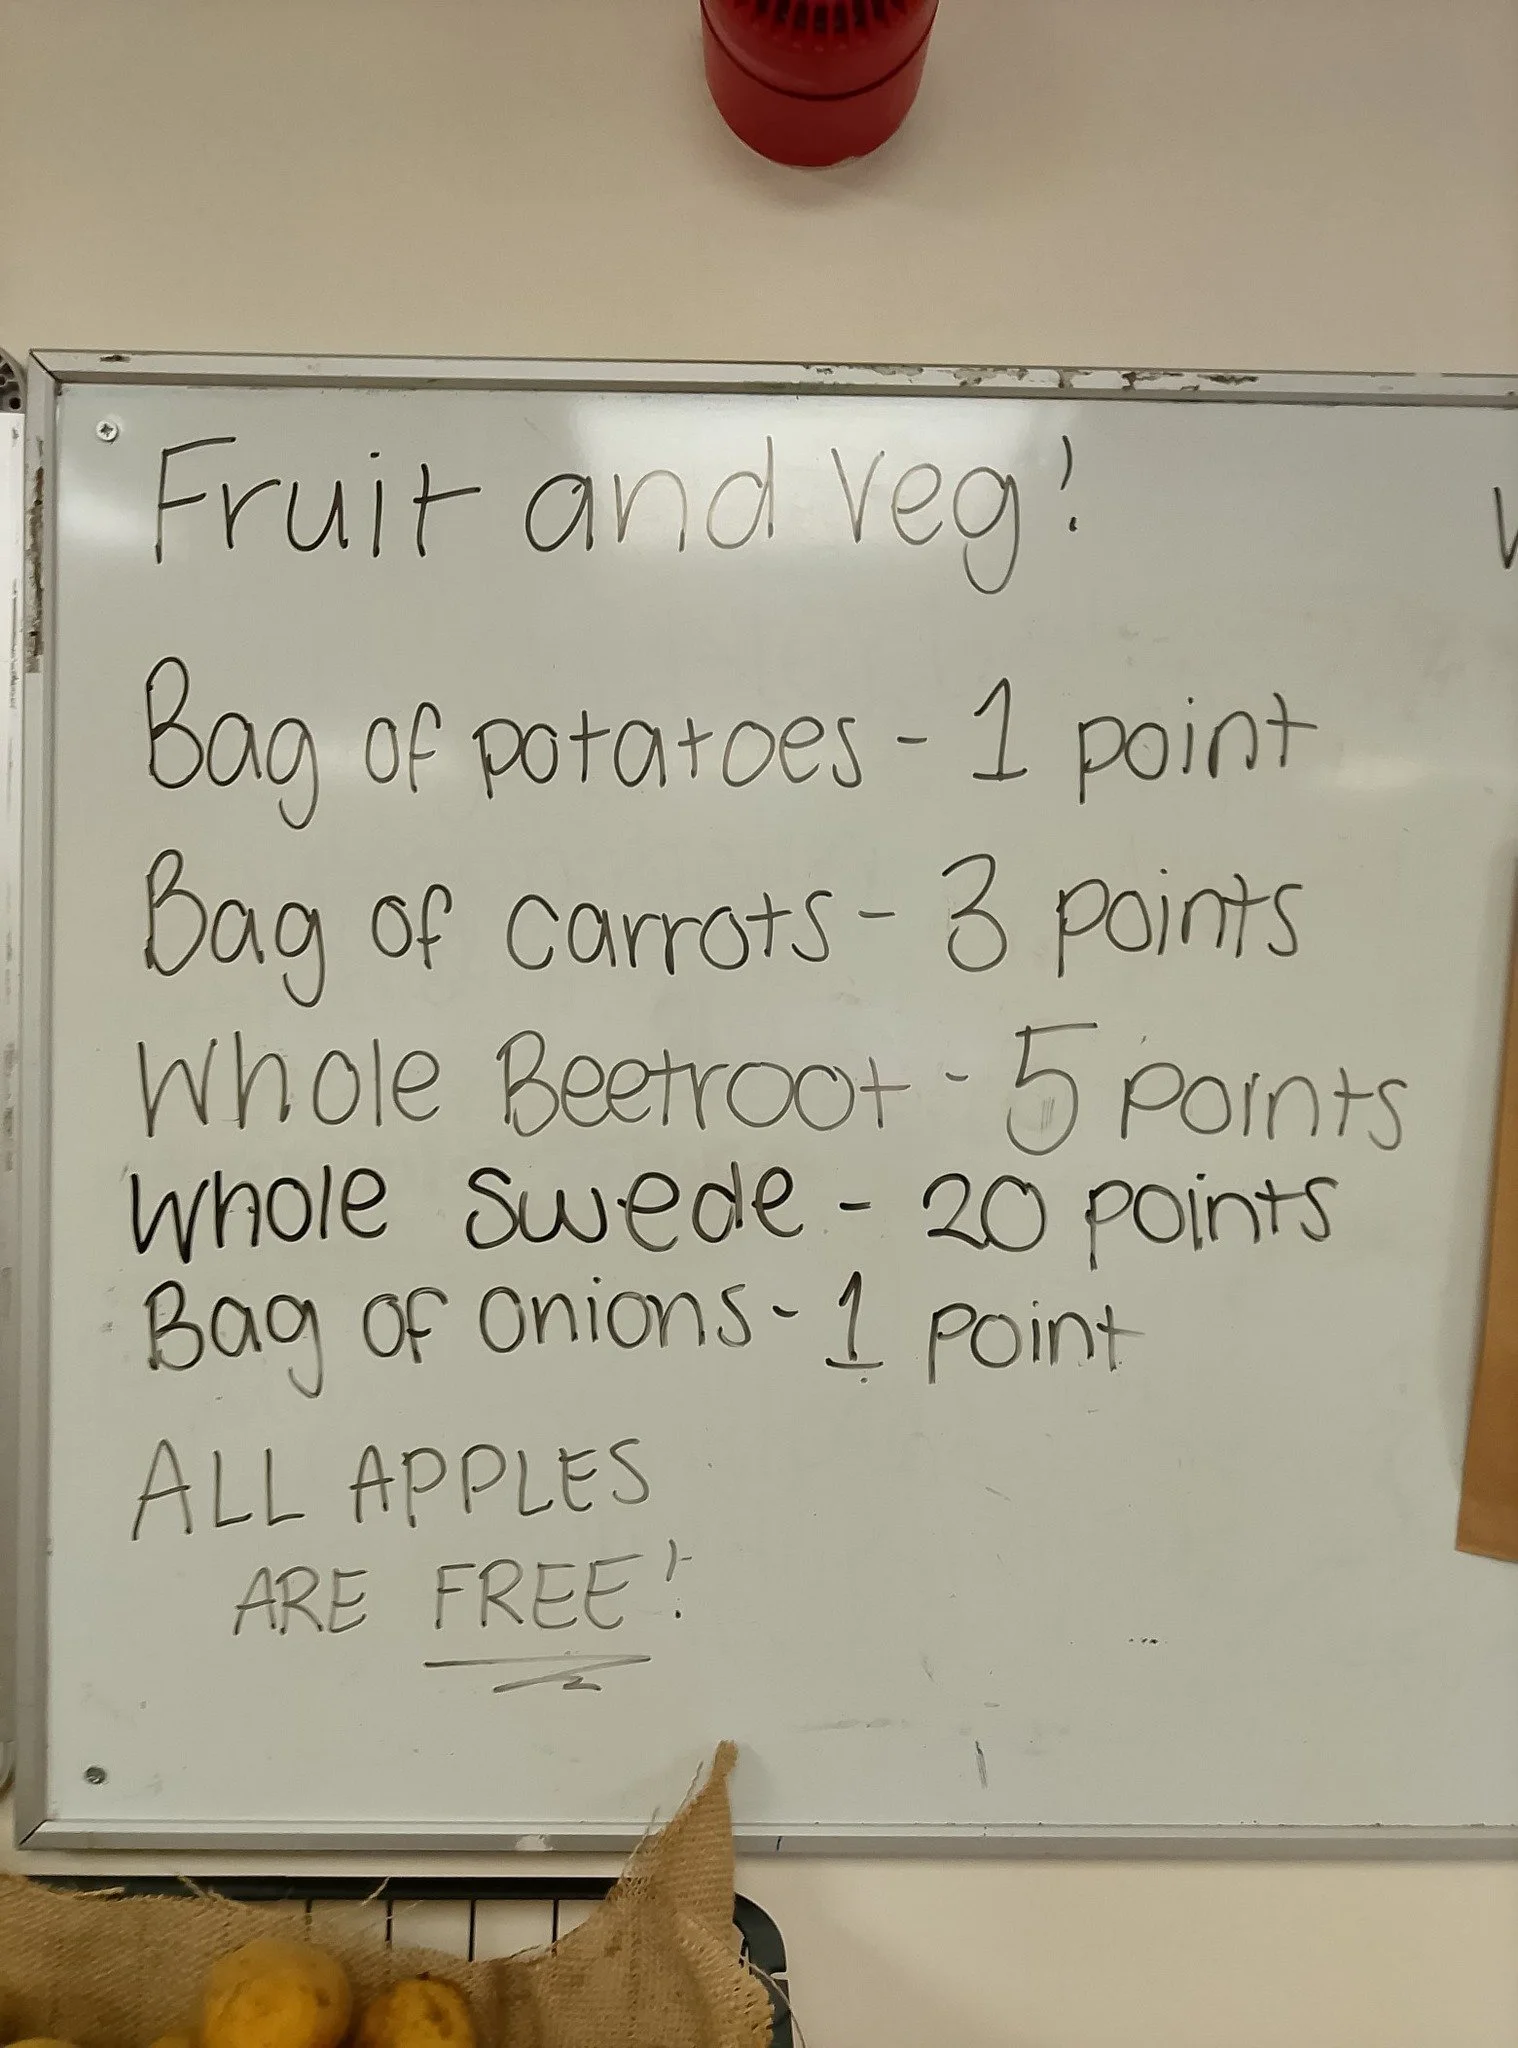 Fruit and veg!
Bag of potatoes - 1 point
Bag of carrots - 3 points
Whole Beetroot - 5 points
Whole swede - 20 points
Bag of onions - 1 point
ALL APPLES
ARE FREE!